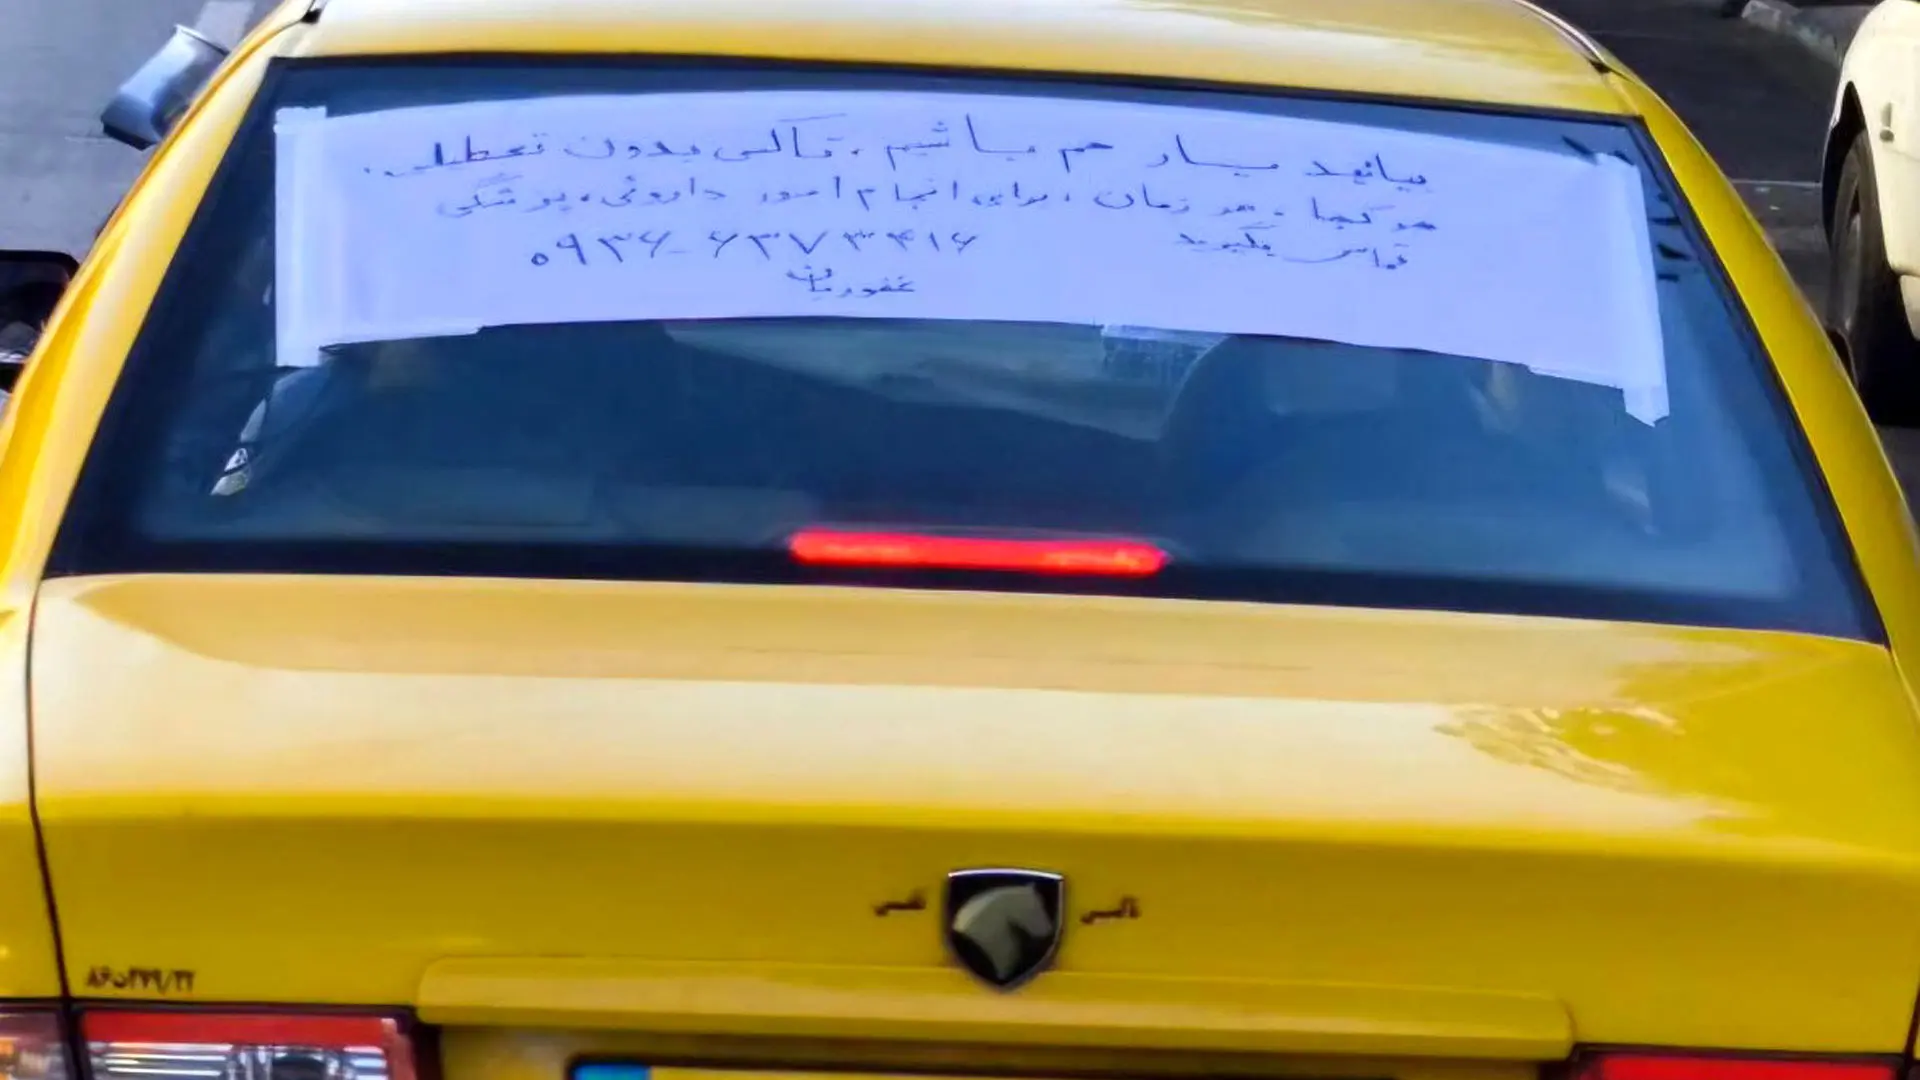 بیائید میار هم میباشیم. تاکسی بدون تعطیلی.
هر کجا. هر زمان. برای انجام امور داروئی، پزشکی
تماس بگیرید
۰۹۳۶-۶۳۷۳۴۱۶
غفوریان
تاکسی تلفنی